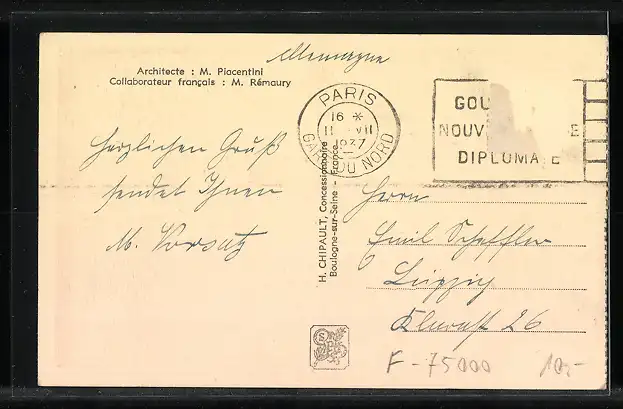 Allemagne
Architecte : M. Piacentini
Collaborateur français : M. Rémaury
PARIS
16 *
II VII
1937
GARE DU NORD
GOU
NOUV E
DIPLOMA E
Herzlichen Gruß
sendet Ihnen
M. Vorsatz
H. CHIPAULT, Concessionnaire
Boulogne-sur-Seine - France
Herrn
Emil Scheffler
Leipzig
26
F-75000
10,-